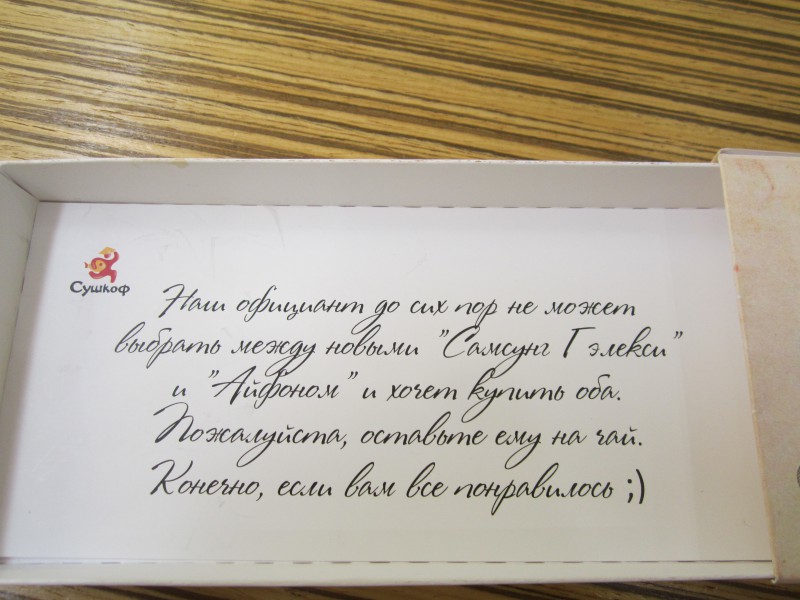 Сушкоф
Наш официант до сих пор не может
выбрать между новыми "Самсунг Гэлекси"
и "Айфоном" и хочет купить оба.
Пожалуйста, оставьте ему на чай.
Конечно, если вам все понравилось ;)